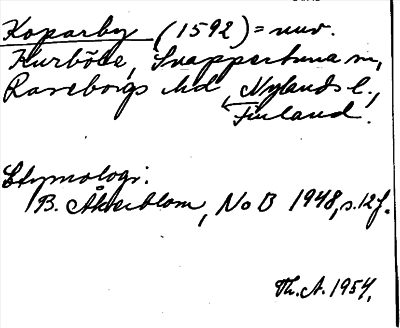 Koparby (1592) = nuv.
Kurböle, Snappertuna sn,
Raseborgs hd, Nylands l.,
Finland.
Etymologi:
B. Åkerblom, NoB 1948, s. 12 f.
Th. A. 1954.